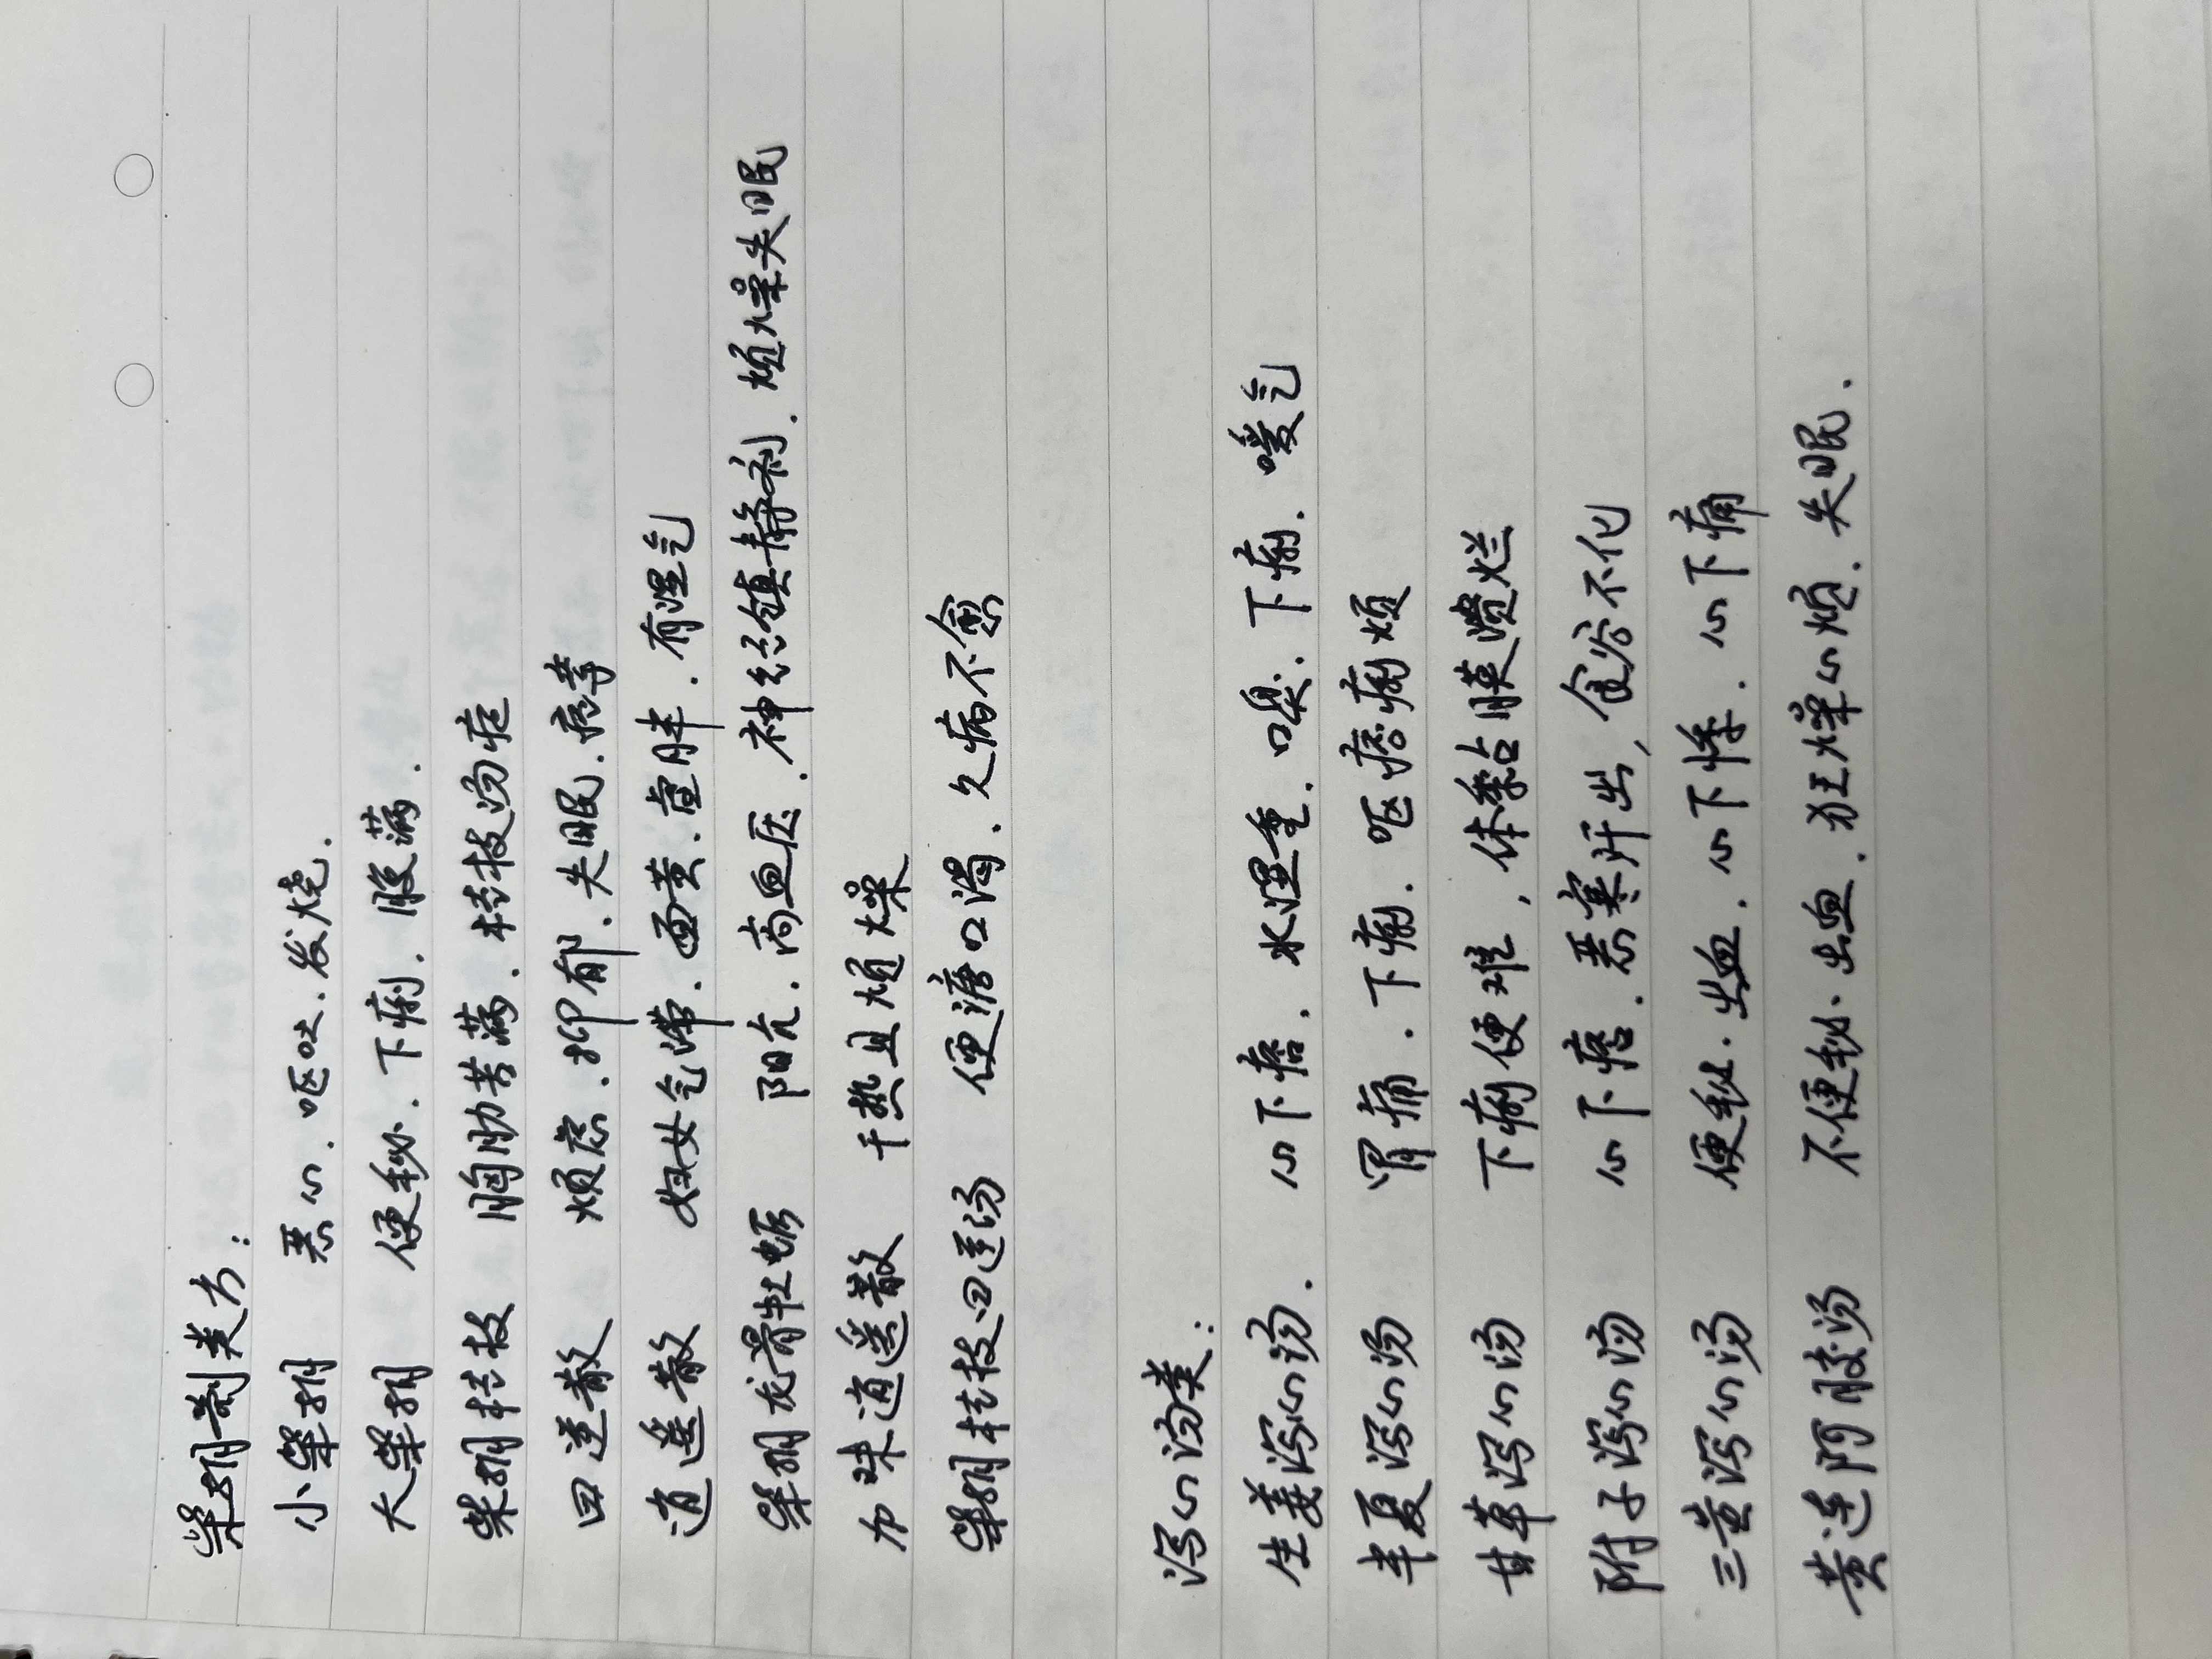 柴胡剂类方：
小柴胡 恶心．呕吐．发烧．
大柴胡 便秘．下痢．腹满．
柴胡桂枝 胸胁苦满．桂枝汤症
四逆散 烦虑．抑郁．失眠．痉挛
逍遥散 妇女气滞．面黄．虚胖．有湿气
柴胡龙骨牡蛎 阳亢．高血压．神经镇静剂．烦燥失眠
加味逍遥散 干热且烦燥
柴胡桂枝四逆汤 便溏口渴．久病不愈
泻心汤类：
生姜泻心汤． 心下痞．水湿重．口臭．下痢．嗳气
半夏泻心汤 胃痛．下痢．呕痞痢烦
甘草泻心汤 下痢便难，体黏膜溃烂
附子泻心汤 心下痞．恶寒汗出，食谷不化
三黄泻心汤 便秘．出血．心下悸．心下痛
黄连阿胶汤 不便秘．出血．狂燥心烦．失眠．